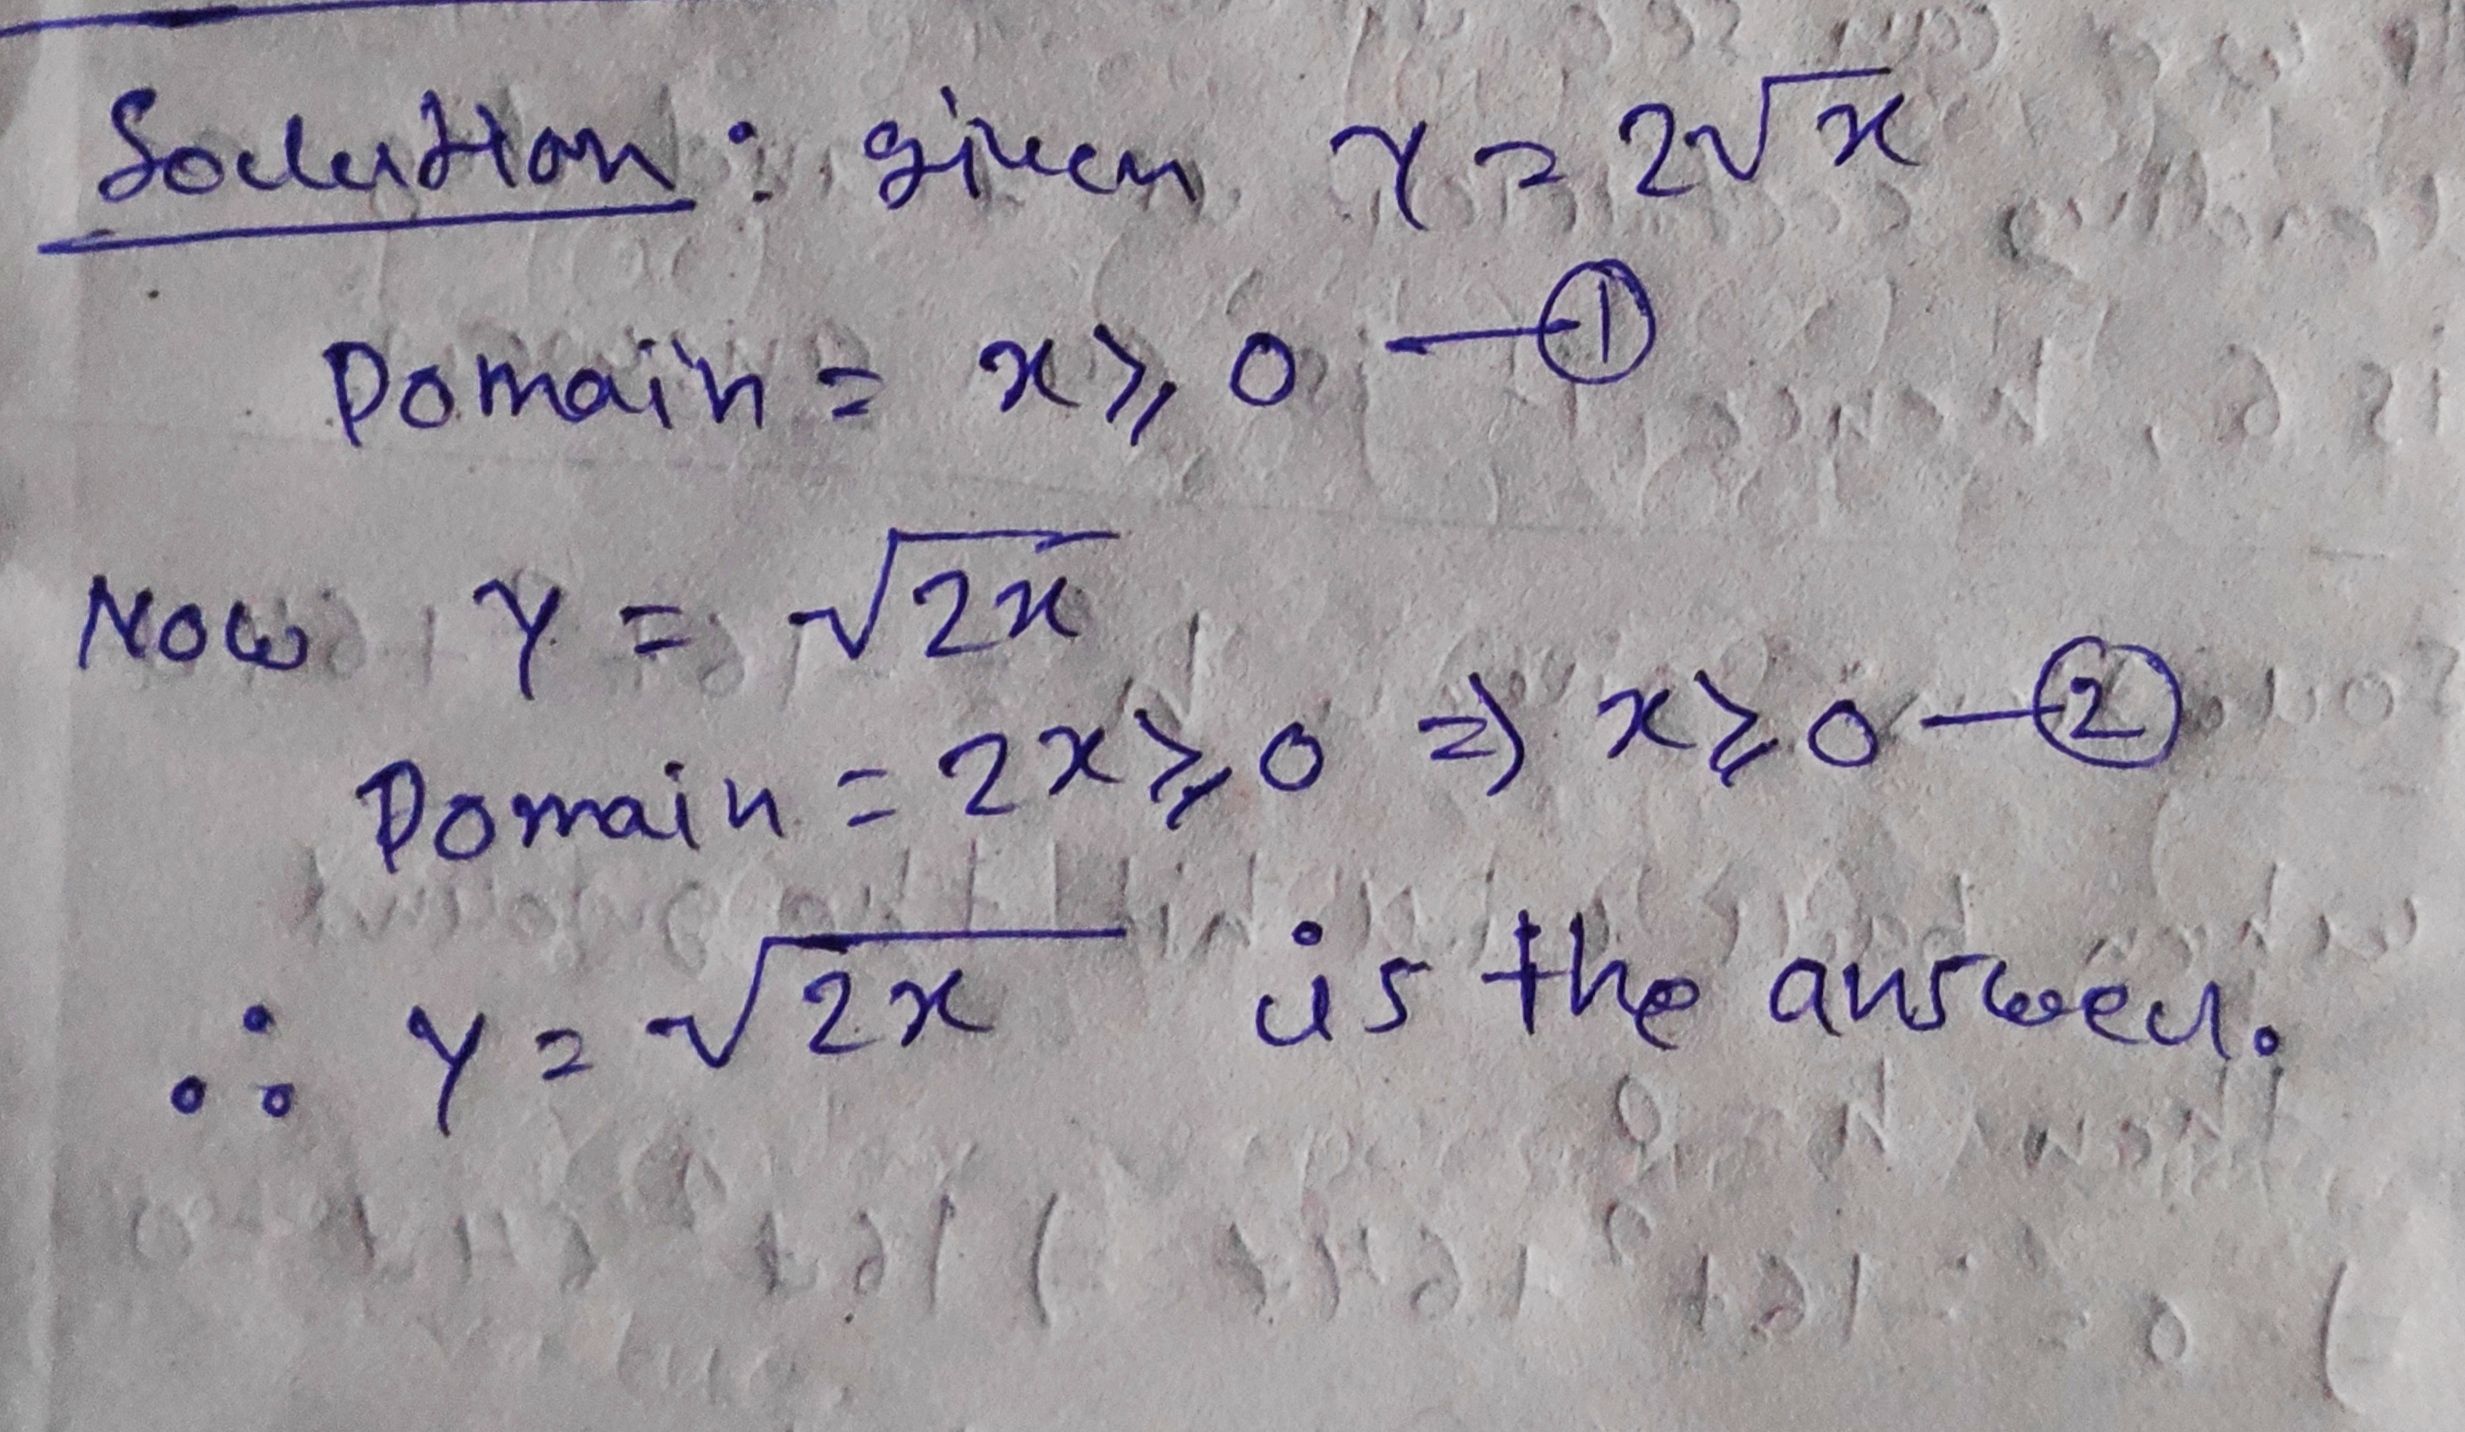 Solution : given y = 2√x
Domain = x ≥ 0 — ①
Now y = √2x
Domain = 2x ≥ 0 ⇒ x ≥ 0 — ②
∴ y = √2x is the answer.